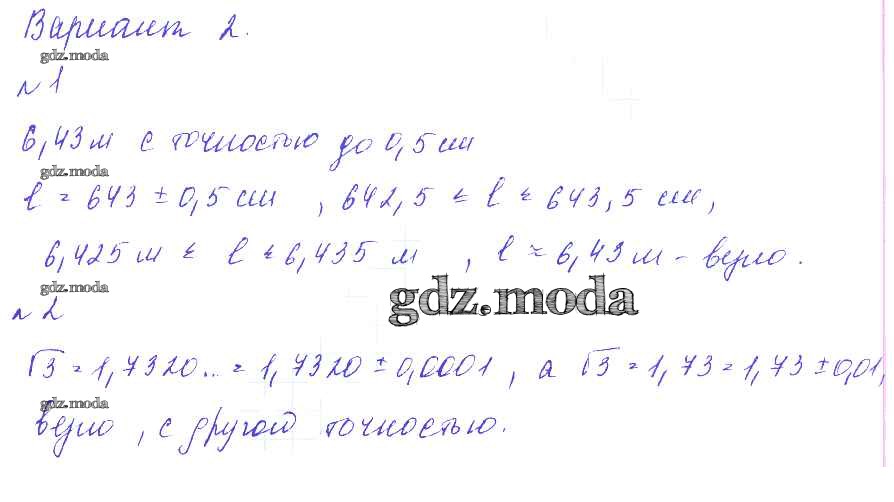 Вариант 2.
gdz.moda
№1
6,43 м с точностью до 0,5 см
gdz.moda
l = 643 ± 0,5 см , 642,5 ≤ l ≤ 643,5 см,
6,425 м ≤ l ≤ 6,435 м , l ≈ 6,43 м – верно.
gdz.moda
gdz.moda
№2
√3 = 1,7320... = 1,7320 ± 0,0001 , а √3 = 1,73 = 1,73 ± 0,01,
gdz.moda
верно , с другой точностью.